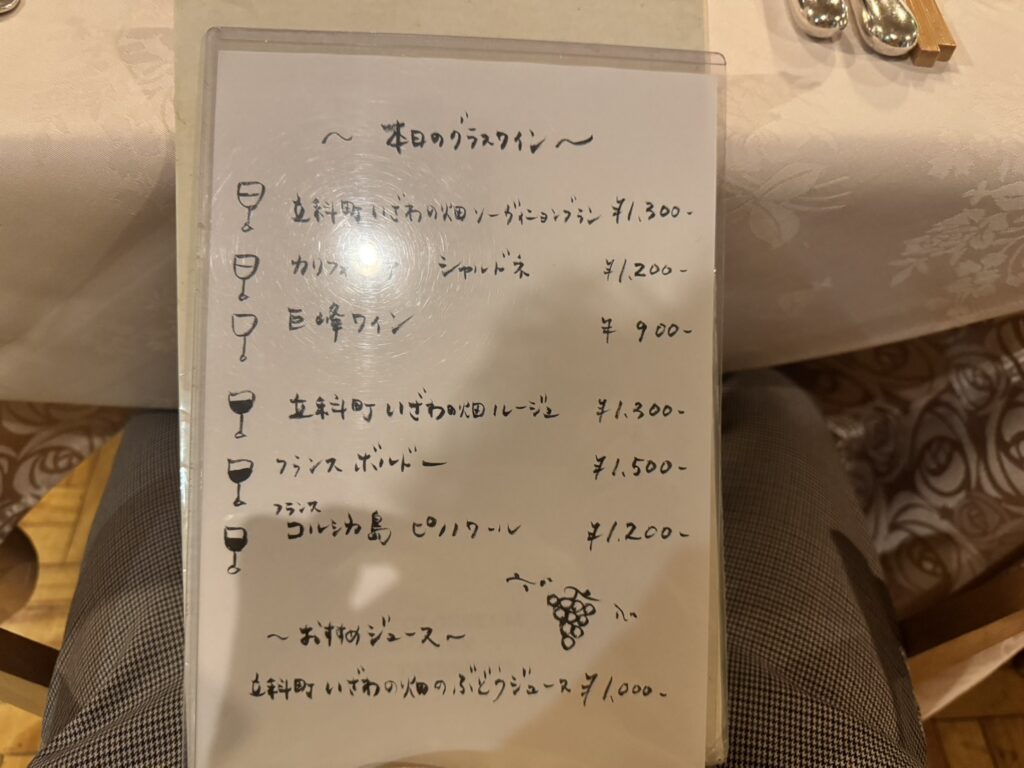 ～ 本日のグラスワイン ～
立科町 いざわの畑 ソーヴィニョンブラン ¥1,300-
カリフォ ア シャルドネ ¥1,200-
巨峰ワイン ¥ 900-
立科町 いざわの畑 ルージュ ¥1,300-
フランス ボルドー ¥1,500-
フランス
コルシカ島 ピノノワール ¥1,200-
～ おすすめジュース ～
立科町 いざわの畑のぶどうジュース ¥1,000-